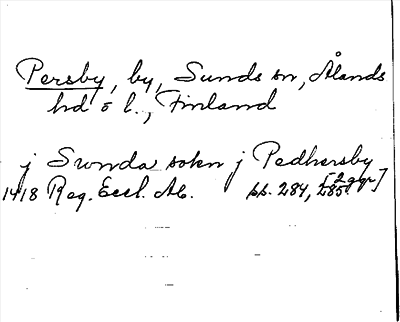 Persby, by, Sunds sn, Ålands
hd o l., Finland
j Swnda sokn j Pedhersby
1418 Reg. Eccl. Ab. ss. 284, 285. [2 ggr]